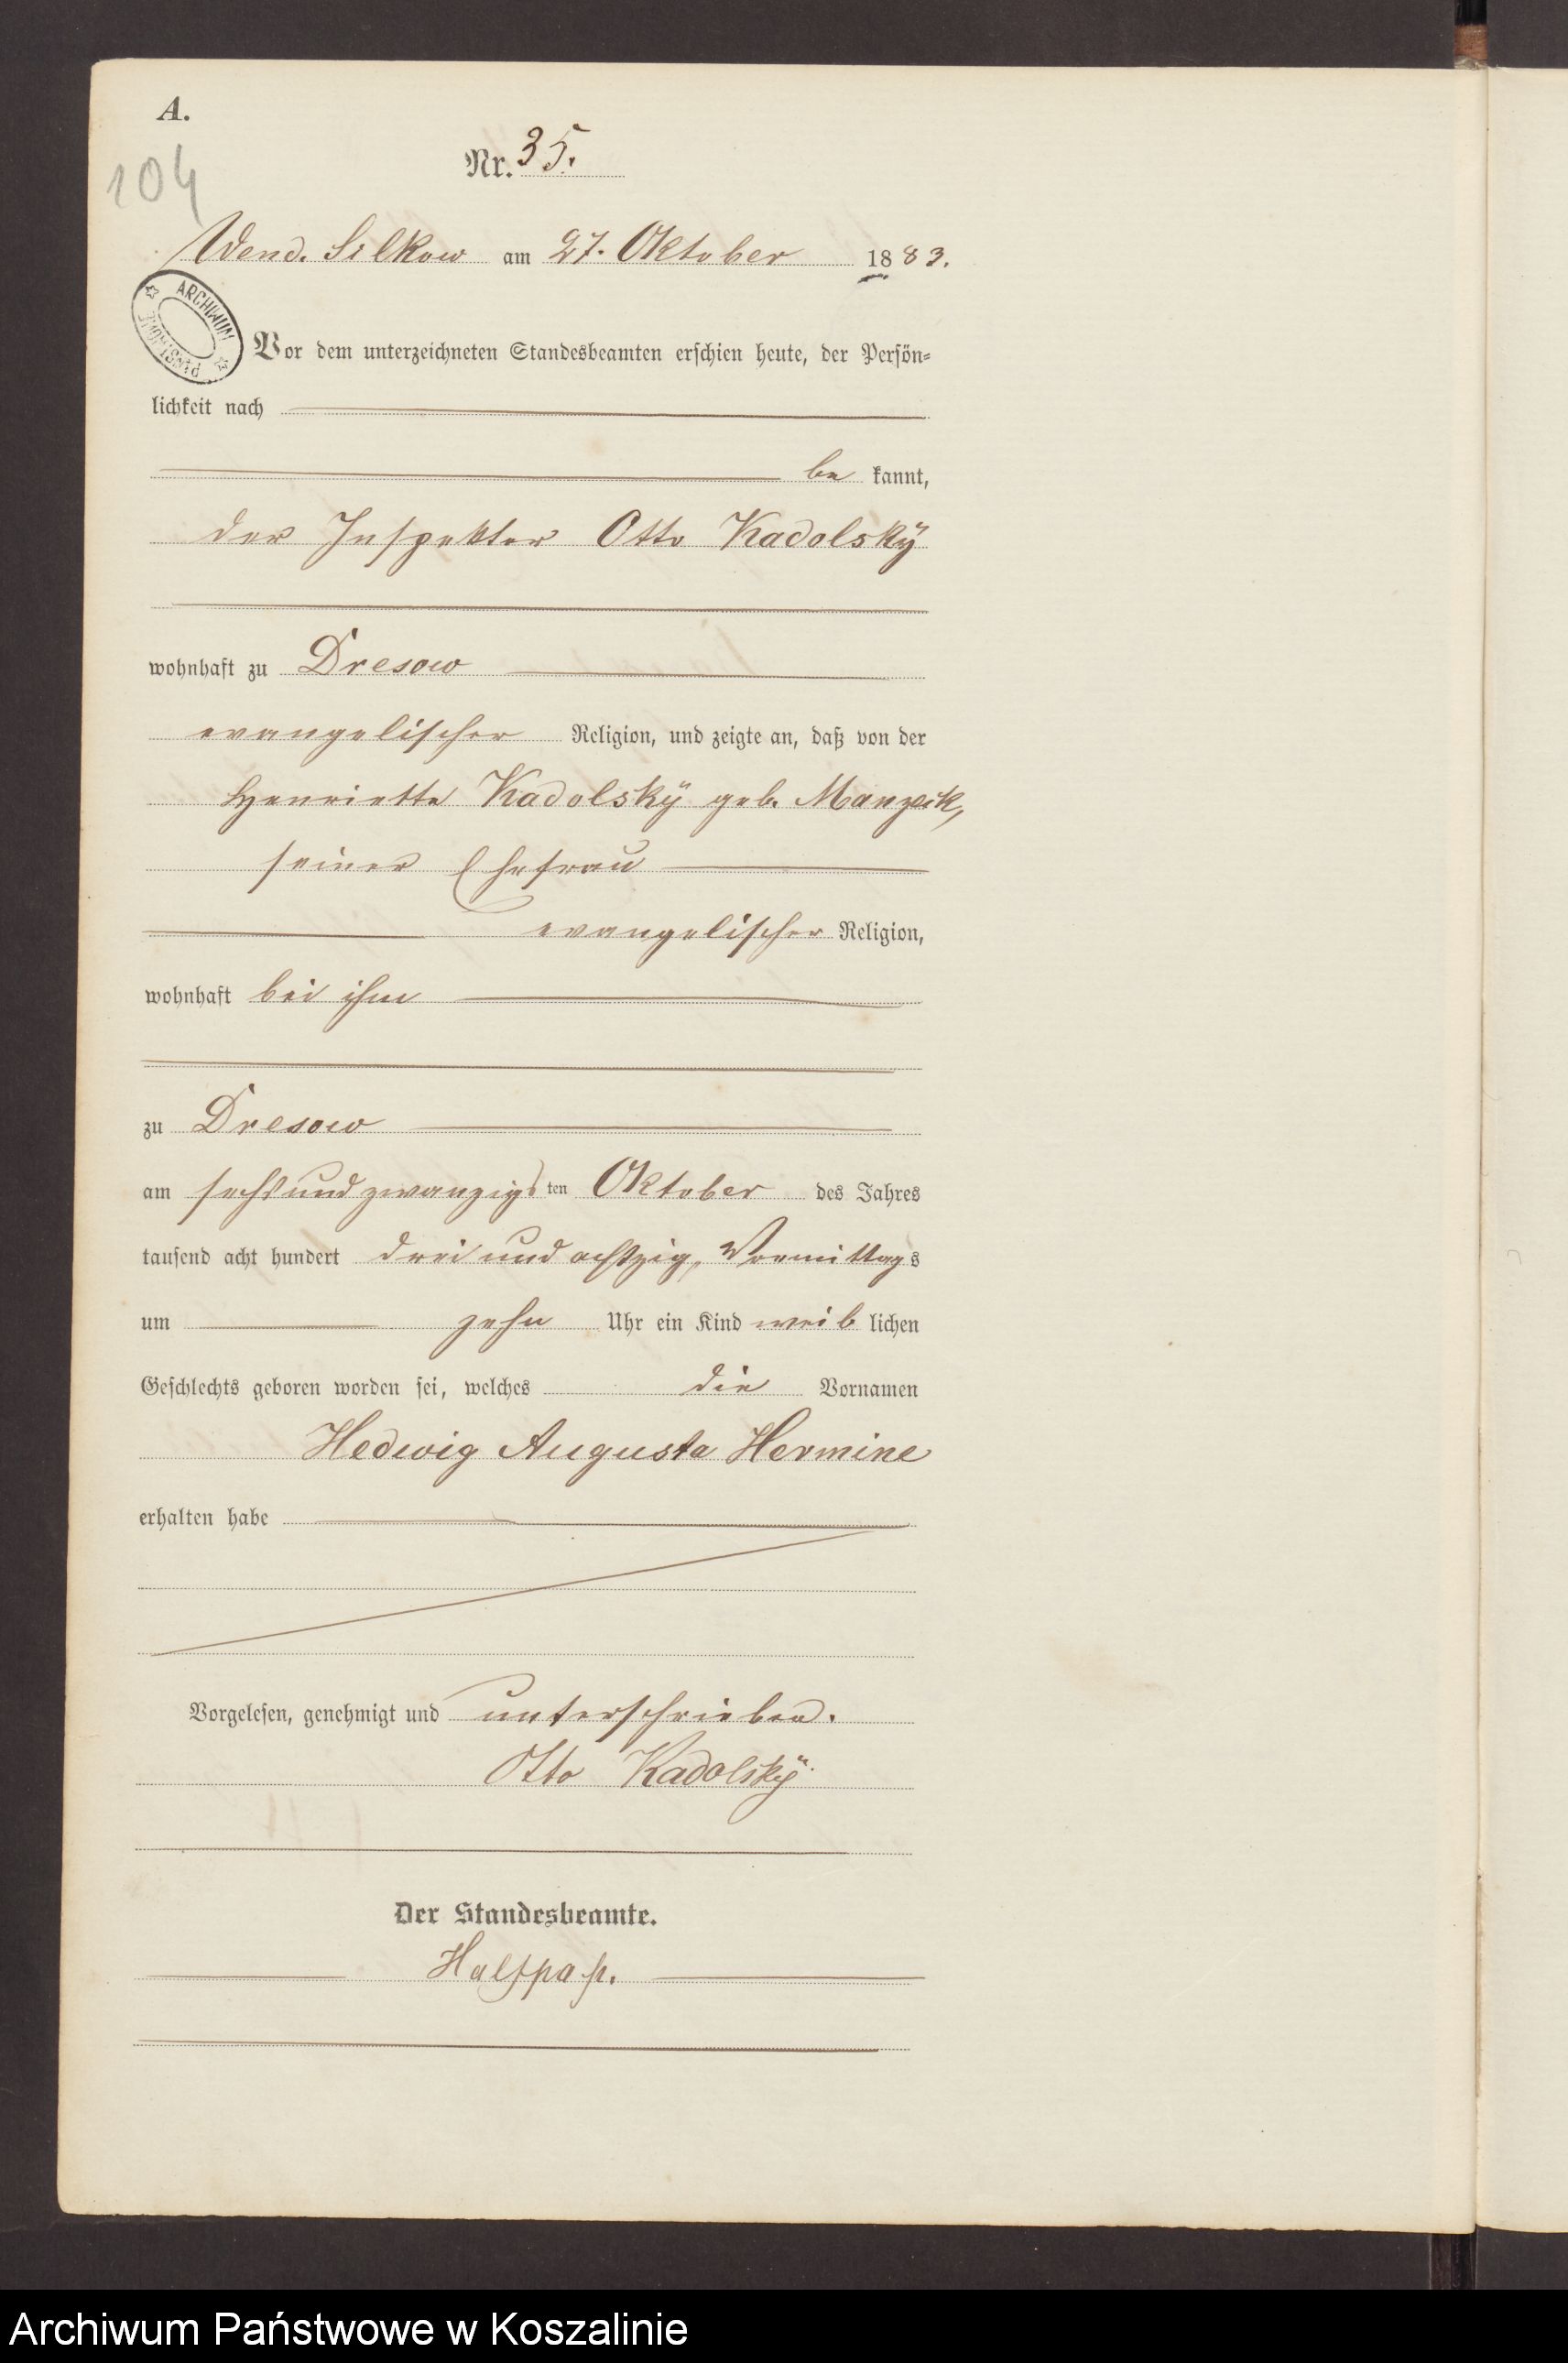 A.
104
Nr. 35.
Wend. Silkow am 27. Oktober 1883.
ARCHIWUM PAŃSTWOWE
Vor dem unterzeichneten Standesbeamten erschien heute, der Persön-
lichkeit nach
be kannt,
der Inspektor Otto Kadolskÿ
wohnhaft zu Dresow
evangelischer Religion, und zeigte an, daß von der
Henriette Kadolskÿ geb. Manzeck,
seiner Ehefrau
evangelischer Religion,
wohnhaft bei ihm
zu Dresow
am sechsundzwanzigs ten Oktober des Jahres
tausend acht hundert drei und achtzig, Vormittags
um zehn Uhr ein Kind weib lichen
Geschlechts geboren worden sei, welches die Vornamen
Hedwig Augusta Hermine
erhalten habe
Vorgelesen, genehmigt und unterschrieben.
Otto Kadolskÿ.
Der Standesbeamte.
Halfpap.
Archiwum Państwowe w Koszalinie